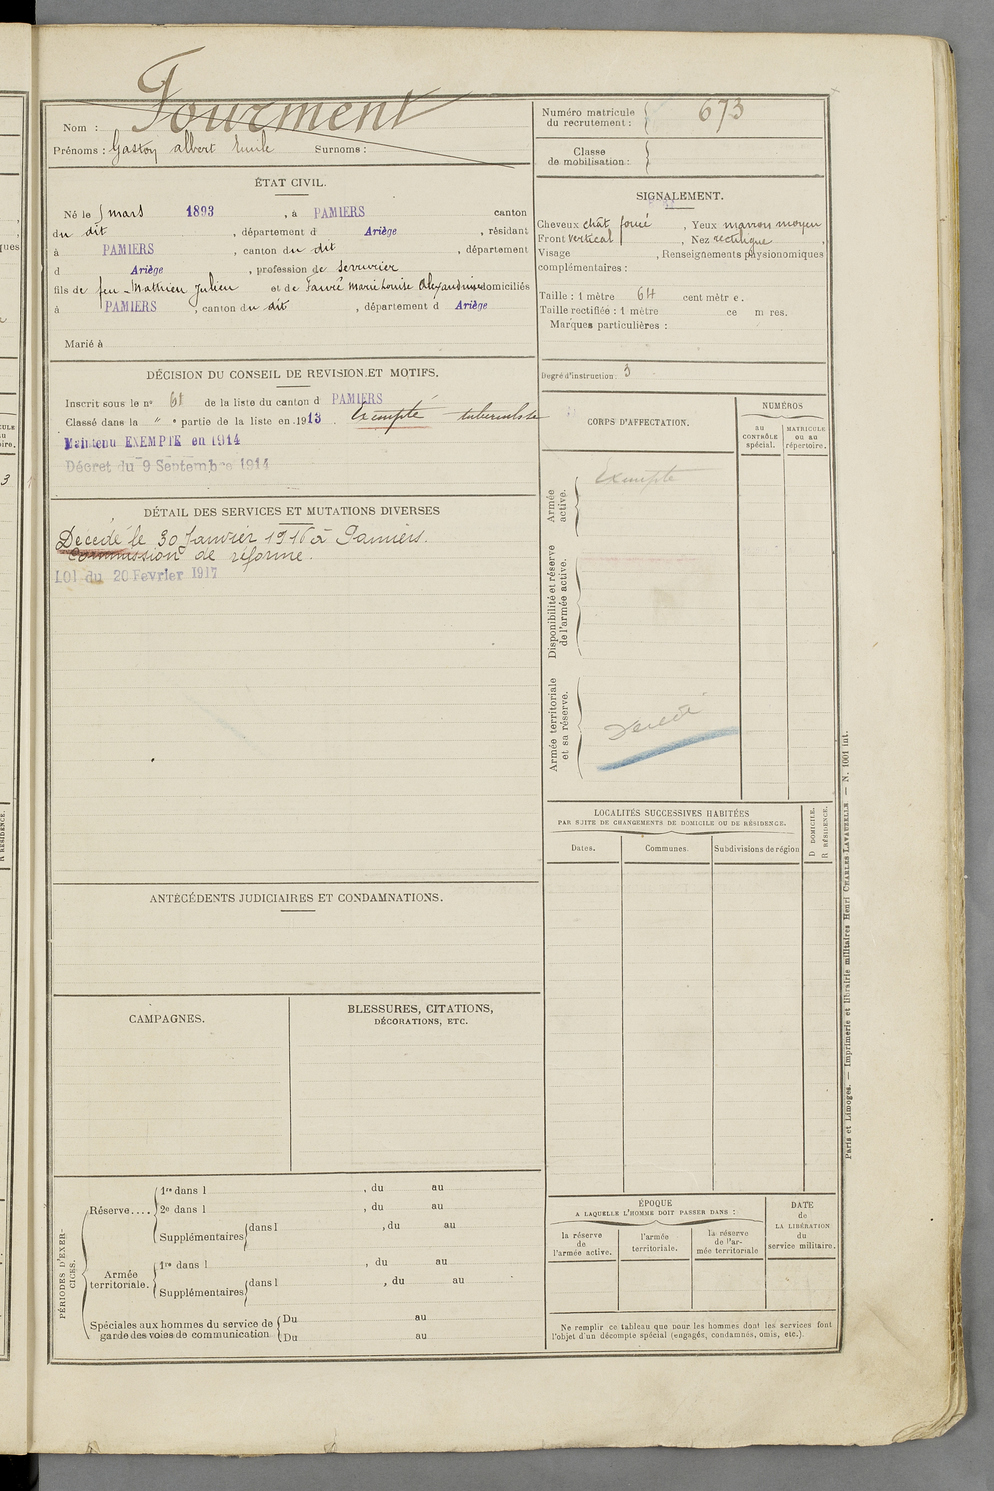 Fourment
Nom :
Prénoms : Gaston albert Emile Surnoms :
Numéro matricule
du recrutement : 673
Classe
de mobilisation :
ÉTAT CIVIL.
Né le 5 mars 1893, à PAMIERS canton
du dit, département d Ariège, résidant
à PAMIERS, canton du dit, département
d Ariège, profession de serrurier
fils de feu Mathieu Julien et de Fauré Marie Louise Alexandrine domiciliés
à PAMIERS, canton du dit, département d Ariège
Marié à
SIGNALEMENT.
Cheveux chât foncé, Yeux marron moyen
Front vertical, Nez rectiligne,
Visage , Renseignements physionomiques
complémentaires :
Taille : 1 mètre 64 centimètre.
Taille rectifiée : 1 mètre ce m res.
Marques particulières :
Degré d'instruction : 3
DÉCISION DU CONSEIL DE REVISION ET MOTIFS.
Inscrit sous le n° 61 de la liste du canton d PAMIERS
Classé dans la " e partie de la liste en 1913. Exempté tuberculose
Maintenu EXEMPTE en 1914
Décret du 9 Septembre 1914
DÉTAIL DES SERVICES ET MUTATIONS DIVERSES
Décédé le 30 Janvier 1916 à Pamiers.
Commission de réforme.
LOI du 20 Fevrier 1917
CORPS D'AFFECTATION.
NUMÉROS
au
CONTRÔLE
spécial.
MATRICULE
ou au
répertoire.
Armée
active.
Exempté
Disponibilité et réserve
de l'armée active.
Armée territoriale
et sa réserve.
Décédé
LOCALITÉS SUCCESSIVES HABITÉES
PAR SUITE DE CHANGEMENTS DE DOMICILE OU DE RÉSIDENCE.
Dates.
Communes.
Subdivisions de région
D DOMICILE.
R RÉSIDENCE.
ANTÉCÉDENTS JUDICIAIRES ET CONDAMNATIONS.
CAMPAGNES.
BLESSURES, CITATIONS,
DÉCORATIONS, ETC.
PÉRIODES D'EXER-
CICES.
Réserve....
1re dans l , du au
2e dans l , du au
Supplémentaires dans l , du au
Armée
territoriale.
1re dans l , du au
Supplémentaires dans l , du au
Spéciales aux hommes du service de
garde des voies de communication
Du au
Du au
ÉPOQUE
A LAQUELLE L'HOMME DOIT PASSER DANS :
la réserve
de
l'armée active.
l'armée
territoriale.
la réserve
de l'ar-
mée territoriale
DATE
de
LA LIBÉRATION
du
service militaire.
Ne remplir ce tableau que pour les hommes dont les services font
l'objet d'un décompte spécial (engagés, condamnés, omis, etc.).
Paris et Limoges. — Imprimerie et librairie militaires Henri CHARLES-LAVAUZELLE — N. 1001 int.